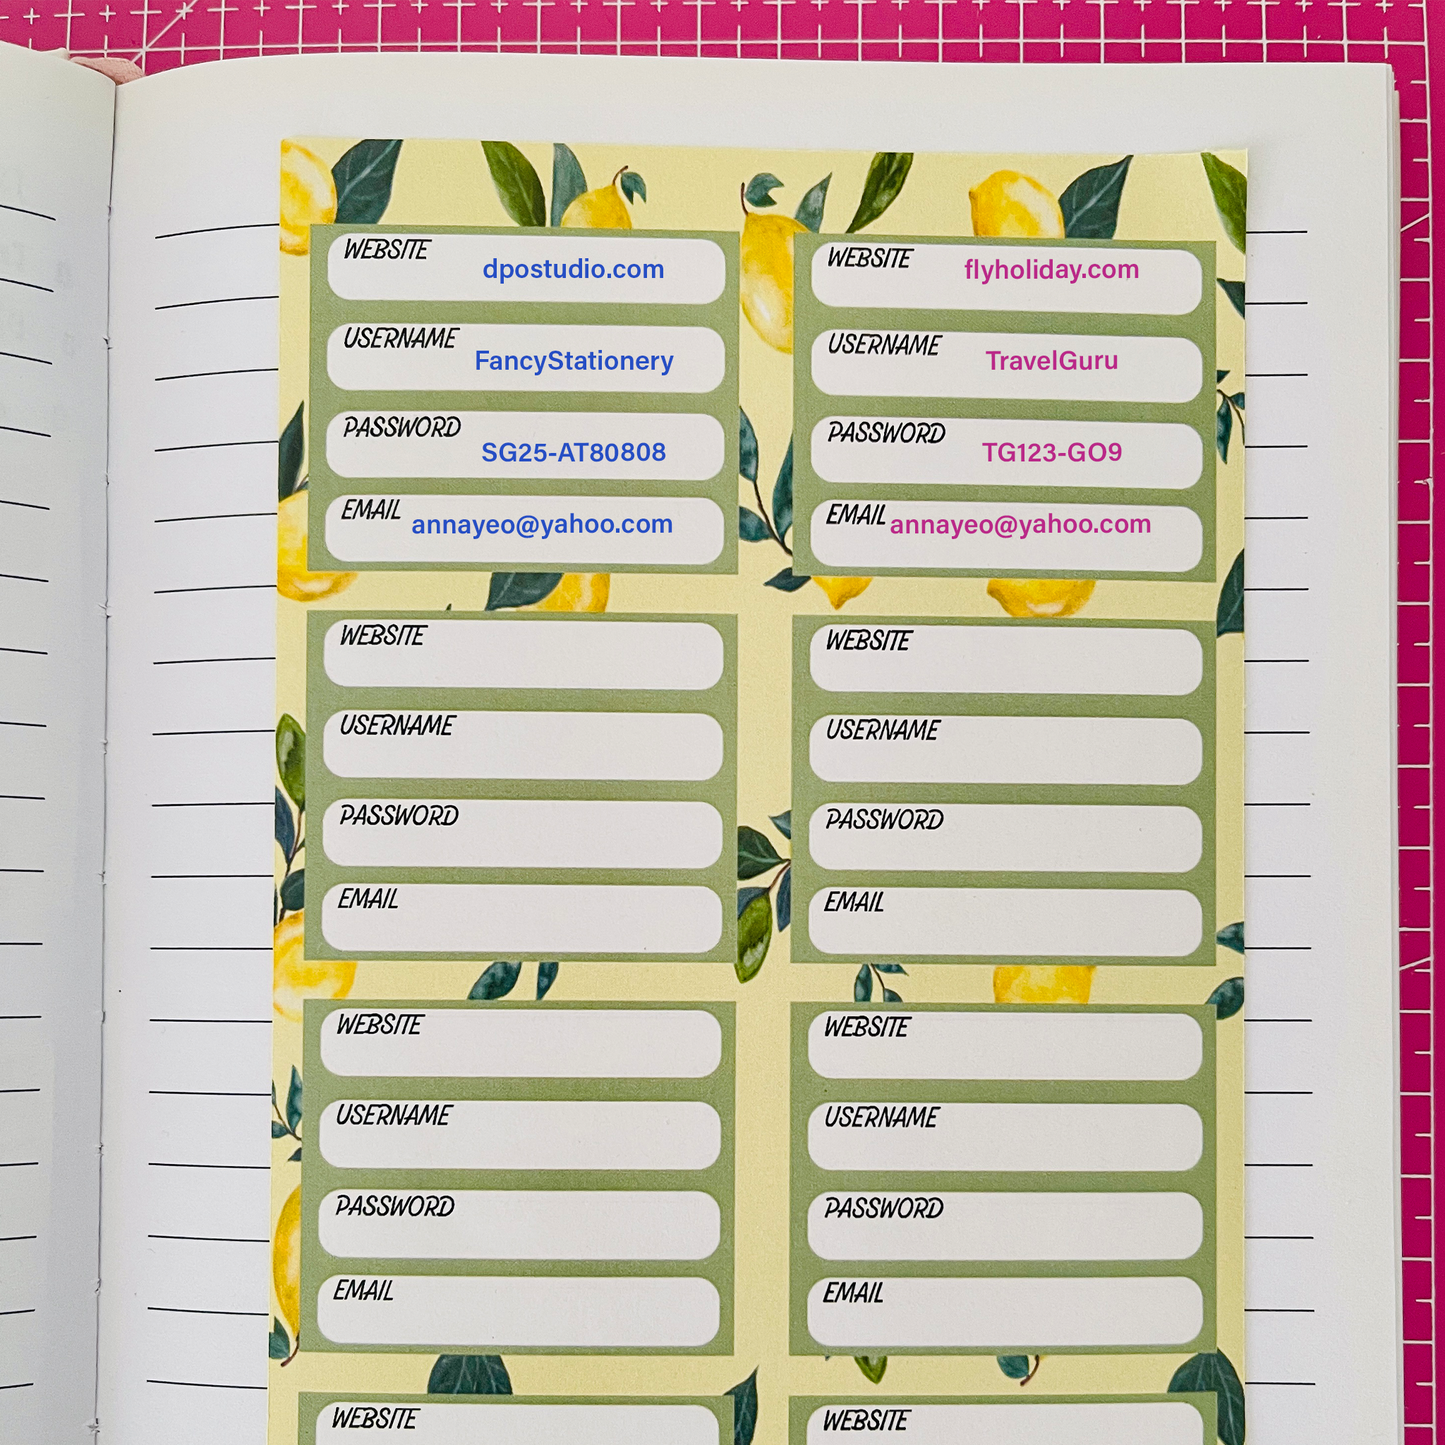 WEBSITE
dpostudio.com
USERNAME
FancyStationery
PASSWORD
SG25-AT80808
EMAIL
annayeo@yahoo.com
WEBSITE
flyholiday.com
USERNAME
TravelGuru
PASSWORD
TG123-GO9
EMAIL
annayeo@yahoo.com
WEBSITE
USERNAME
PASSWORD
EMAIL
WEBSITE
USERNAME
PASSWORD
EMAIL
WEBSITE
USERNAME
PASSWORD
EMAIL
WEBSITE
USERNAME
PASSWORD
EMAIL
WEBSITE
WEBSITE